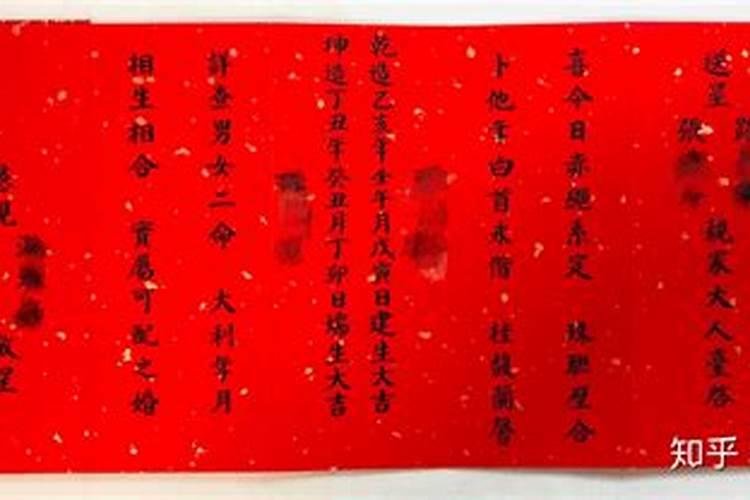 送呈
張
親家大人臺啓
喜今日赤繩系定　珠聯璧合
卜他年白首永偕　桂馥蘭馨
乾造乙亥年壬午月戊寅日建生大吉
坤造丁丑年癸丑月丁卯日瑞生大吉
詳查男女二命　大利年月
相生相合　實屬可配之婚
知乎